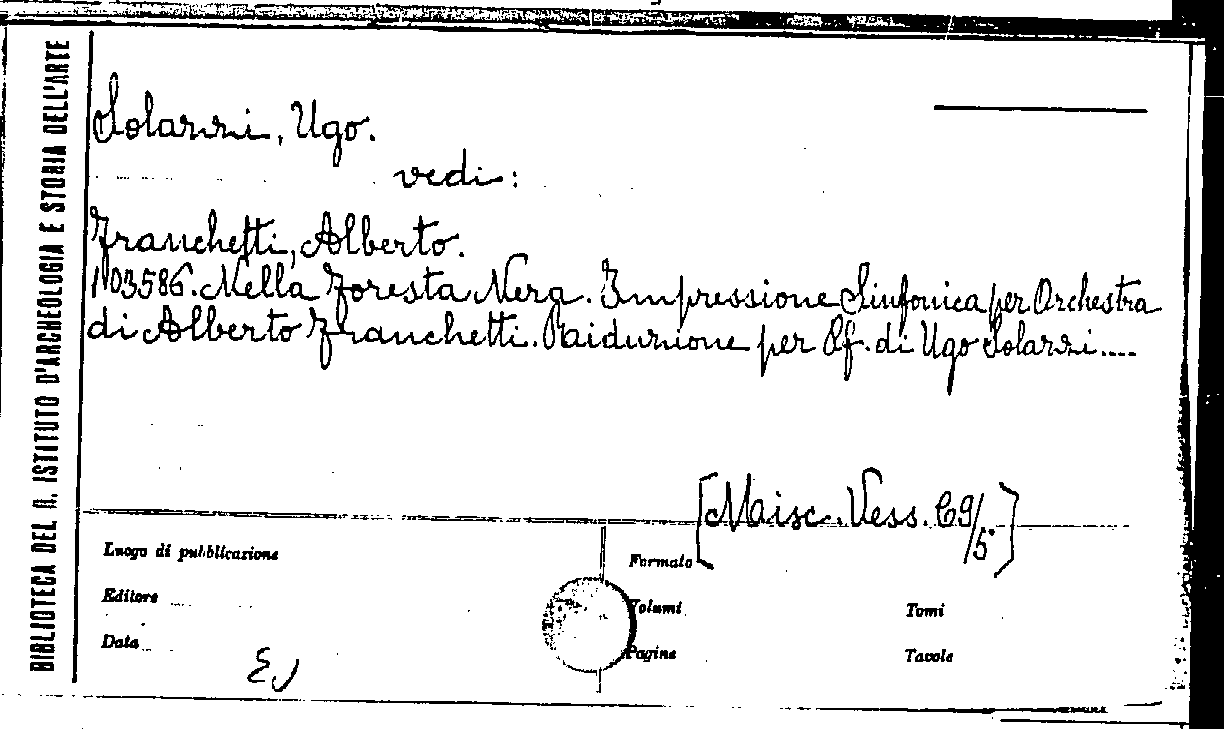 BIBLIOTECA DEL R. ISTITUTO D'ARCHEOLOGIA E STORIA DELL'ARTE
Solazzi, Ugo.
vedi:
Franchetti, Alberto.
103586. Nella Foresta Nera. Impressione Sinfonica per Orchestra
di Alberto Franchetti. Raiduzione per Pf. di Ugo Solazzi....
[Misc. Vess. C9/5]
Luogo di pubblicazione
Formato
Editore
Volumi
Tomi
Data
Pagine
Tavole